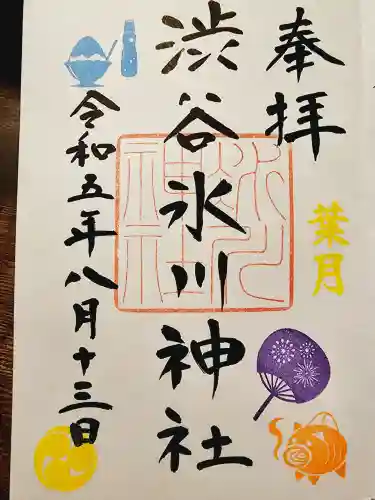 奉拝
葉月
渋谷氷川神社
令和五年八月十三日